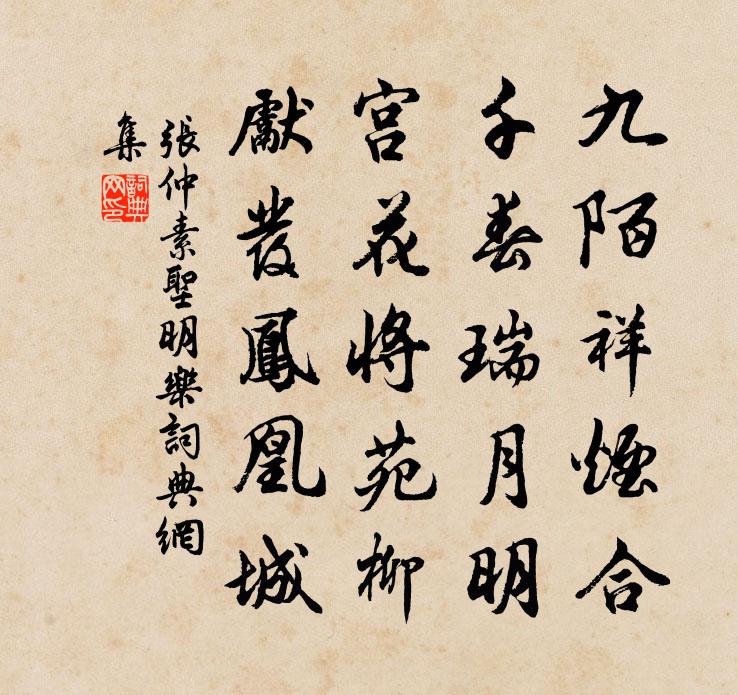 九陌祥煙合
千春瑞月明
宮花將苑柳
獻發鳳凰城
張仲素聖明樂詞典網
集
詞典網印